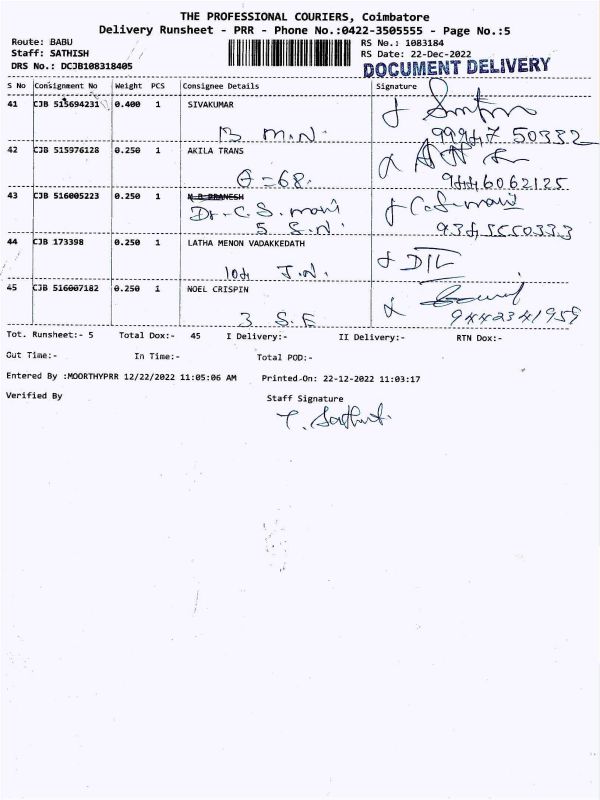 THE PROFESSIONAL COURIERS, Coimbatore
Delivery Runsheet - PRR - Phone No.:0422-3505555 - Page No.:5
Route: BABU
Staff: SATHISH
DRS No.: DCJB108318405
RS No.: 1083184
RS Date: 22-Dec-2022
DOCUMENT DELIVERY
S No Consignment No Weight PCS Consignee Details Signature
41 CJB 515694231 0.400 1 SIVAKUMAR
B M.N. 99947 50332
42 CJB 515976128 0.250 1 AKILA TRANS
θ=68. 9446062125
43 CJB 516005223 0.250 1
Dr. C. S. mani C.S.mani
5 S.N.
44 CJB 173398 0.250 1 LATHA MENON VADAKKEDATH
104 J.N.
45 CJB 516007182 0.250 1 NOEL CRISPIN
3 S.E 9442341959
Tot. Runsheet:- 5 Total Dox:- 45 I Delivery:- II Delivery:- RTN Dox:-
Out Time:- In Time:- Total POD:-
Entered By :MOORTHYPRR 12/22/2022 11:05:06 AM Printed-On: 22-12-2022 11:03:17
Verified By Staff Signature
T. Sathish.